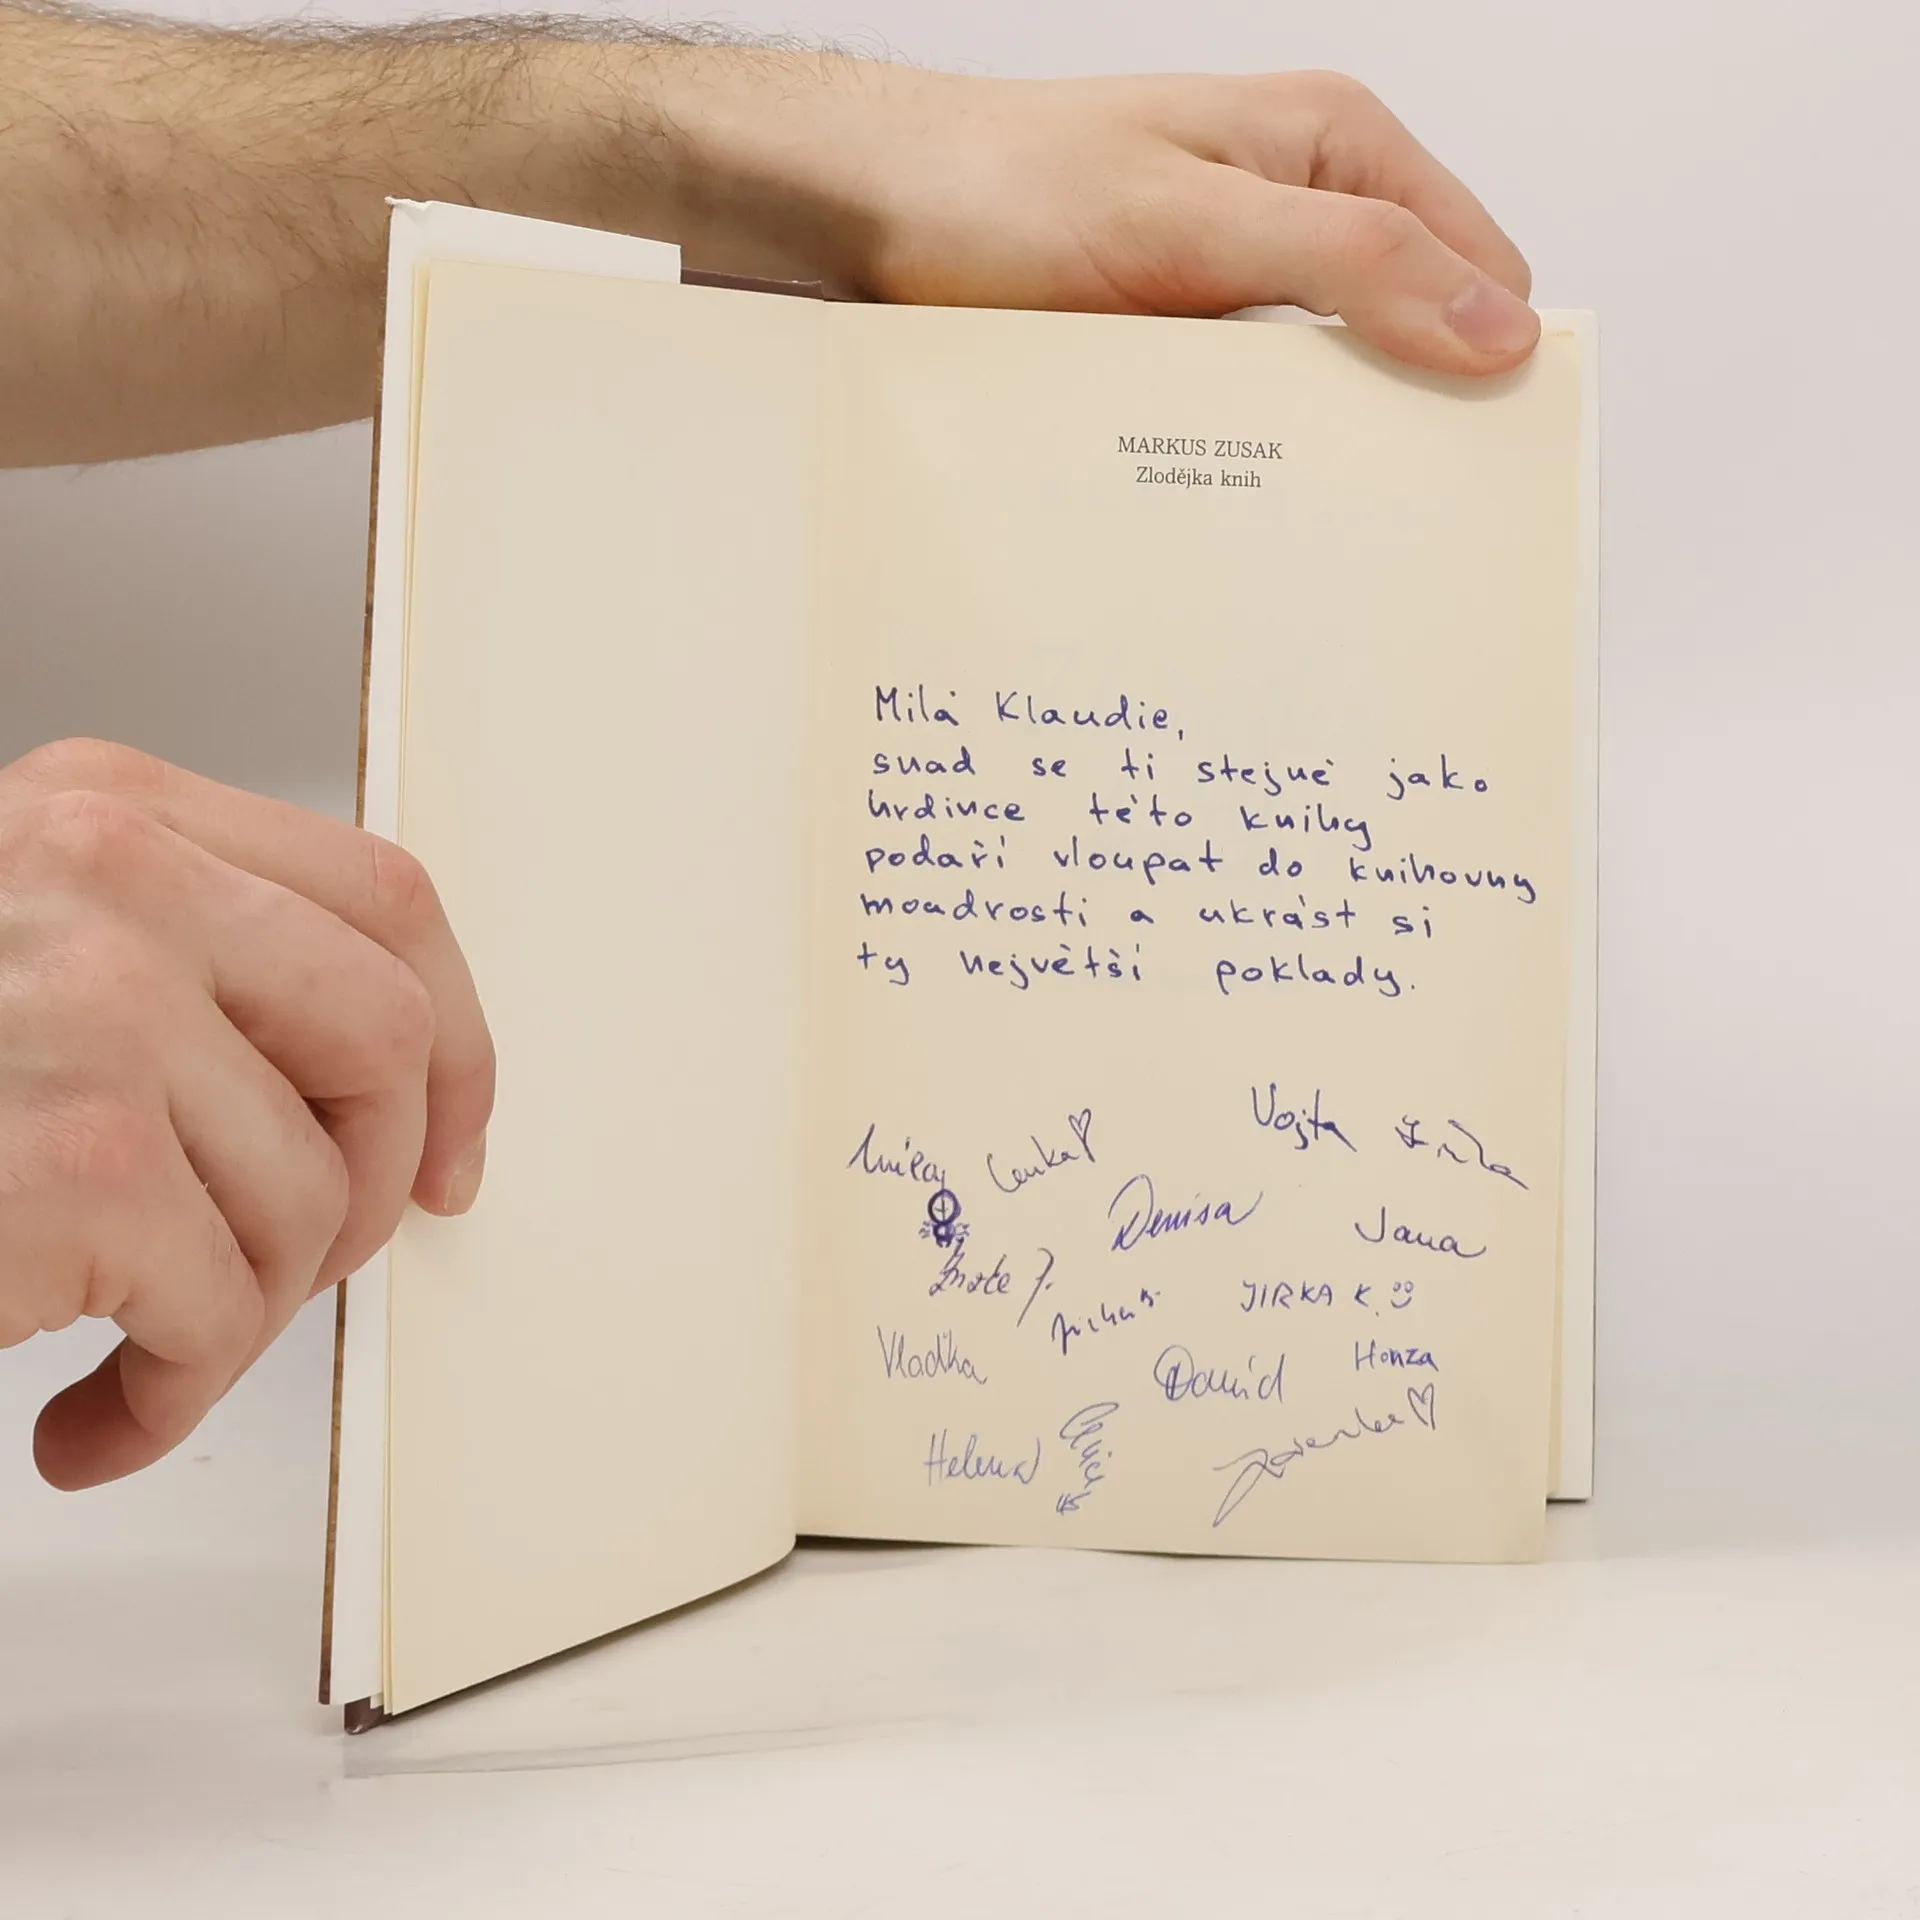 MARKUS ZUSAK
Zlodějka knih
Milá Klaudie,
snad se ti stejně jako
hrdince této knihy
podaří vloupat do knihovny
moudrosti a ukrást si
ty největší poklady.
Vojta
Lenka
Denisa
Jana
JIRKA K.
Vlaďka
David
Honza
Helena